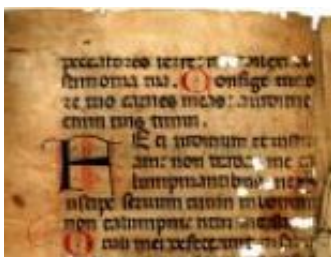 peccatores terre:
stimonia tua. Confige timo
re tuo carnes meas: a iudiciis
enim tuis timui.
Feci iudicium et iusti
am: non tradas me ca
lumpniantibus me
suscipe seruum tuum in bonum
non calumpnie
Oculi mei defecerunt in